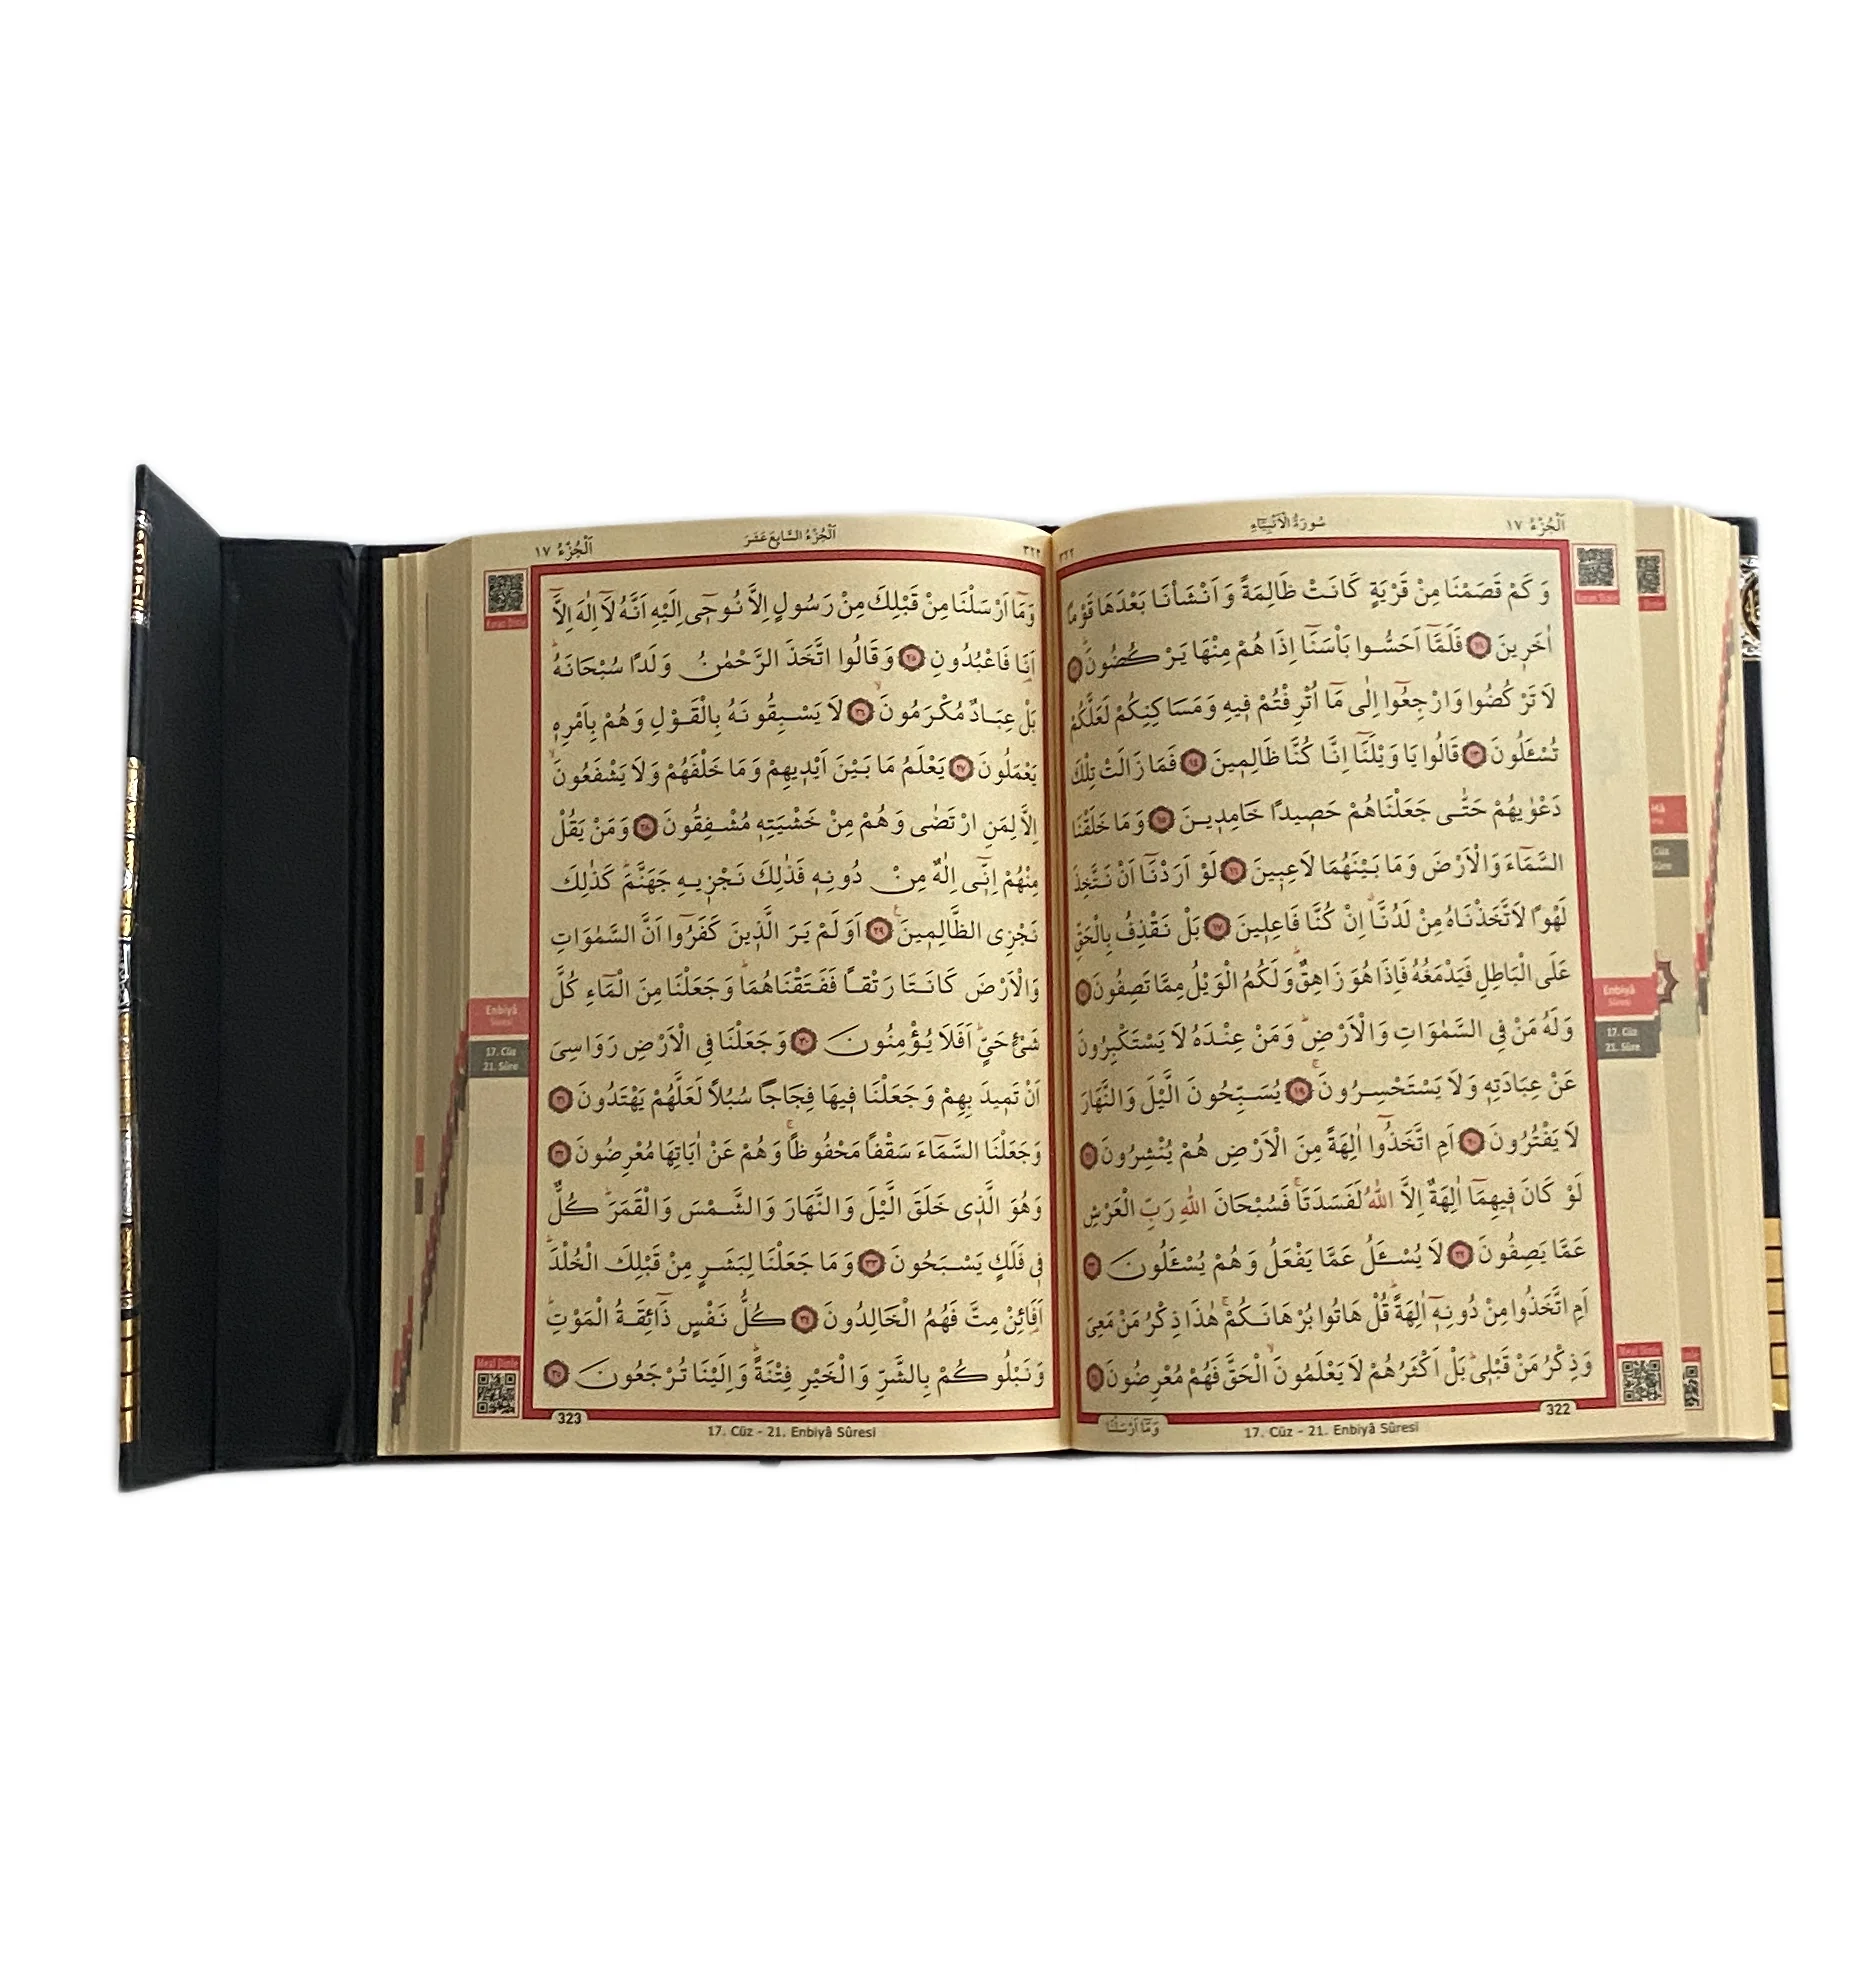 سُورَةُ الْاَنْبِيَاءِ
اَلْجُزْءُ ١٧
٣٢٢
وَكَمْ قَصَمْنَا مِنْ قَرْيَةٍ كَانَتْ ظَالِمَةً وَاَنْشَأْنَا بَعْدَهَا قَوْمًا
اٰخَرٖينَ ﴿١١﴾ فَلَمَّٓا اَحَسُّوا بَأْسَنَٓا اِذَا هُمْ مِنْهَا يَرْكُضُونَۜ ﴿١٢﴾
لَا تَرْكُضُوا وَارْجِعُٓوا اِلٰى مَٓا اُتْرِفْتُمْ فٖيهِ وَمَسَاكِنِكُمْ لَعَلَّكُمْ
تُسْـَٔلُونَ ﴿١٣﴾ قَالُوا يَا وَيْلَنَٓا اِنَّا كُنَّا ظَالِمٖينَ ﴿١٤﴾ فَمَا زَالَتْ تِلْكَ
دَعْوٰيهُمْ حَتّٰى جَعَلْنَاهُمْ حَصٖيدًا خَامِدٖينَ ﴿١٥﴾ وَمَا خَلَقْنَا
السَّمَٓاءَ وَالْاَرْضَ وَمَا بَيْنَهُمَا لَاعِبٖينَ ﴿١٦﴾ لَوْ اَرَدْنَٓا اَنْ نَتَّخِذَ
لَهْوًا لَاتَّخَذْنَاهُ مِنْ لَدُنَّاۗ اِنْ كُنَّا فَاعِلٖينَ ﴿١٧﴾ بَلْ نَقْذِفُ بِالْحَقِّ
عَلَى الْبَاطِلِ فَيَدْمَغُهُ فَاِذَا هُوَ زَاهِقٌۜ وَلَكُمُ الْوَيْلُ مِمَّا تَصِفُونَ ﴿١٨﴾
وَلَهُ مَنْ فِي السَّمٰوَاتِ وَالْاَرْضِۜ وَمَنْ عِنْدَهُ لَا يَسْتَكْبِرُونَ
عَنْ عِبَادَتِهٖ وَلَا يَسْتَحْسِرُونَۚ ﴿١٩﴾ يُسَبِّحُونَ الَّيْلَ وَالنَّهَارَ
لَا يَفْتُرُونَ ﴿٢٠﴾ اَمِ اتَّخَذُٓوا اٰلِهَةً مِنَ الْاَرْضِ هُمْ يُنْشِرُونَ ﴿٢١﴾
لَوْ كَانَ فٖيهِمَٓا اٰلِهَةٌ اِلَّا اللّٰهُ لَفَسَدَتَاۚ فَسُبْحَانَ اللّٰهِ رَبِّ الْعَرْشِ
عَمَّا يَصِفُونَ ﴿٢٢﴾ لَا يُسْـَٔلُ عَمَّا يَفْعَلُ وَهُمْ يُسْـَٔلُونَ ﴿٢٣﴾
اَمِ اتَّخَذُوا مِنْ دُونِهٖٓ اٰلِهَةًۜ قُلْ هَاتُوا بُرْهَانَكُمْۚ هٰذَا ذِكْرُ مَنْ مَعِيَ
وَذِكْرُ مَنْ قَبْلٖيۜ بَلْ اَكْثَرُهُمْ لَا يَعْلَمُونَ الْحَقَّۙ فَهُمْ مُعْرِضُونَ ﴿٢٤﴾
322
وَمَٓا اَرْسَلْنَا
17. Cüz - 21. Enbiyâ Sûresi
Kuran Dinle
Enbiyâ
Sûresi
17. Cüz
21. Sûre
Meal Dinle
اَلْجُزْءُ السَّابِعَ عَشَرَ
اَلْجُزْءُ ١٧
وَمَٓا اَرْسَلْنَا مِنْ قَبْلِكَ مِنْ رَسُولٍ اِلَّا نُوحٖٓي اِلَيْهِ اَنَّهُ لَٓا اِلٰهَ اِلَّٓا
اَنَا۬ فَاعْبُدُونِ ﴿٢٥﴾ وَقَالُوا اتَّخَذَ الرَّحْمٰنُ وَلَدًا سُبْحَانَهُۜ
بَلْ عِبَادٌ مُكْرَمُونَۙ ﴿٢٦﴾ لَا يَسْبِقُونَهُ بِالْقَوْلِ وَهُمْ بِاَمْرِهٖ
يَعْمَلُونَ ﴿٢٧﴾ يَعْلَمُ مَا بَيْنَ اَيْدٖيهِمْ وَمَا خَلْفَهُمْ وَلَا يَشْفَعُونَۙ
اِلَّا لِمَنِ ارْتَضٰى وَهُمْ مِنْ خَشْيَتِهٖ مُشْفِقُونَ ﴿٢٨﴾ وَمَنْ يَقُلْ
مِنْهُمْ اِنّٖٓي اِلٰهٌ مِنْ دُونِهٖ فَذٰلِكَ نَجْزٖيهِ جَهَنَّمَۜ كَذٰلِكَ
نَجْزِي الظَّالِمٖينَ۟ ﴿٢٩﴾ اَوَلَمْ يَرَ الَّذٖينَ كَفَرُٓوا اَنَّ السَّمٰوَاتِ
وَالْاَرْضَ كَانَتَا رَتْقًا فَفَتَقْنَاهُمَاۜ وَجَعَلْنَا مِنَ الْمَٓاءِ كُلَّ
شَيْءٍ حَيٍّۜ اَفَلَا يُؤْمِنُونَ ﴿٣٠﴾ وَجَعَلْنَا فِي الْاَرْضِ رَوَاسِيَ
اَنْ تَمٖيدَ بِهِمْ وَجَعَلْنَا فٖيهَا فِجَاجًا سُبُلًا لَعَلَّهُمْ يَهْتَدُونَ ﴿٣١﴾
وَجَعَلْنَا السَّمَٓاءَ سَقْفًا مَحْفُوظًاۚ وَهُمْ عَنْ اٰيَاتِهَا مُعْرِضُونَ ﴿٣٢﴾
وَهُوَ الَّذٖي خَلَقَ الَّيْلَ وَالنَّهَارَ وَالشَّمْسَ وَالْقَمَرَۜ كُلٌّ
فٖي فَلَكٍ يَسْبَحُونَ ﴿٣٣﴾ وَمَا جَعَلْنَا لِبَشَرٍ مِنْ قَبْلِكَ الْخُلْدَۜ
اَفَا۬ئِنْ مِتَّ فَهُمُ الْخَالِدُونَ ﴿٣٤﴾ كُلُّ نَفْسٍ ذَٓائِقَةُ الْمَوْتِۜ
وَنَبْلُوكُمْ بِالشَّرِّ وَالْخَيْرِ فِتْنَةًۜ وَاِلَيْنَا تُرْجَعُونَ ﴿٣٥﴾
323
17. Cüz - 21. Enbiyâ Sûresi
Kuran Dinle
Enbiyâ
Sûresi
17. Cüz
21. Sûre
Meal Dinle